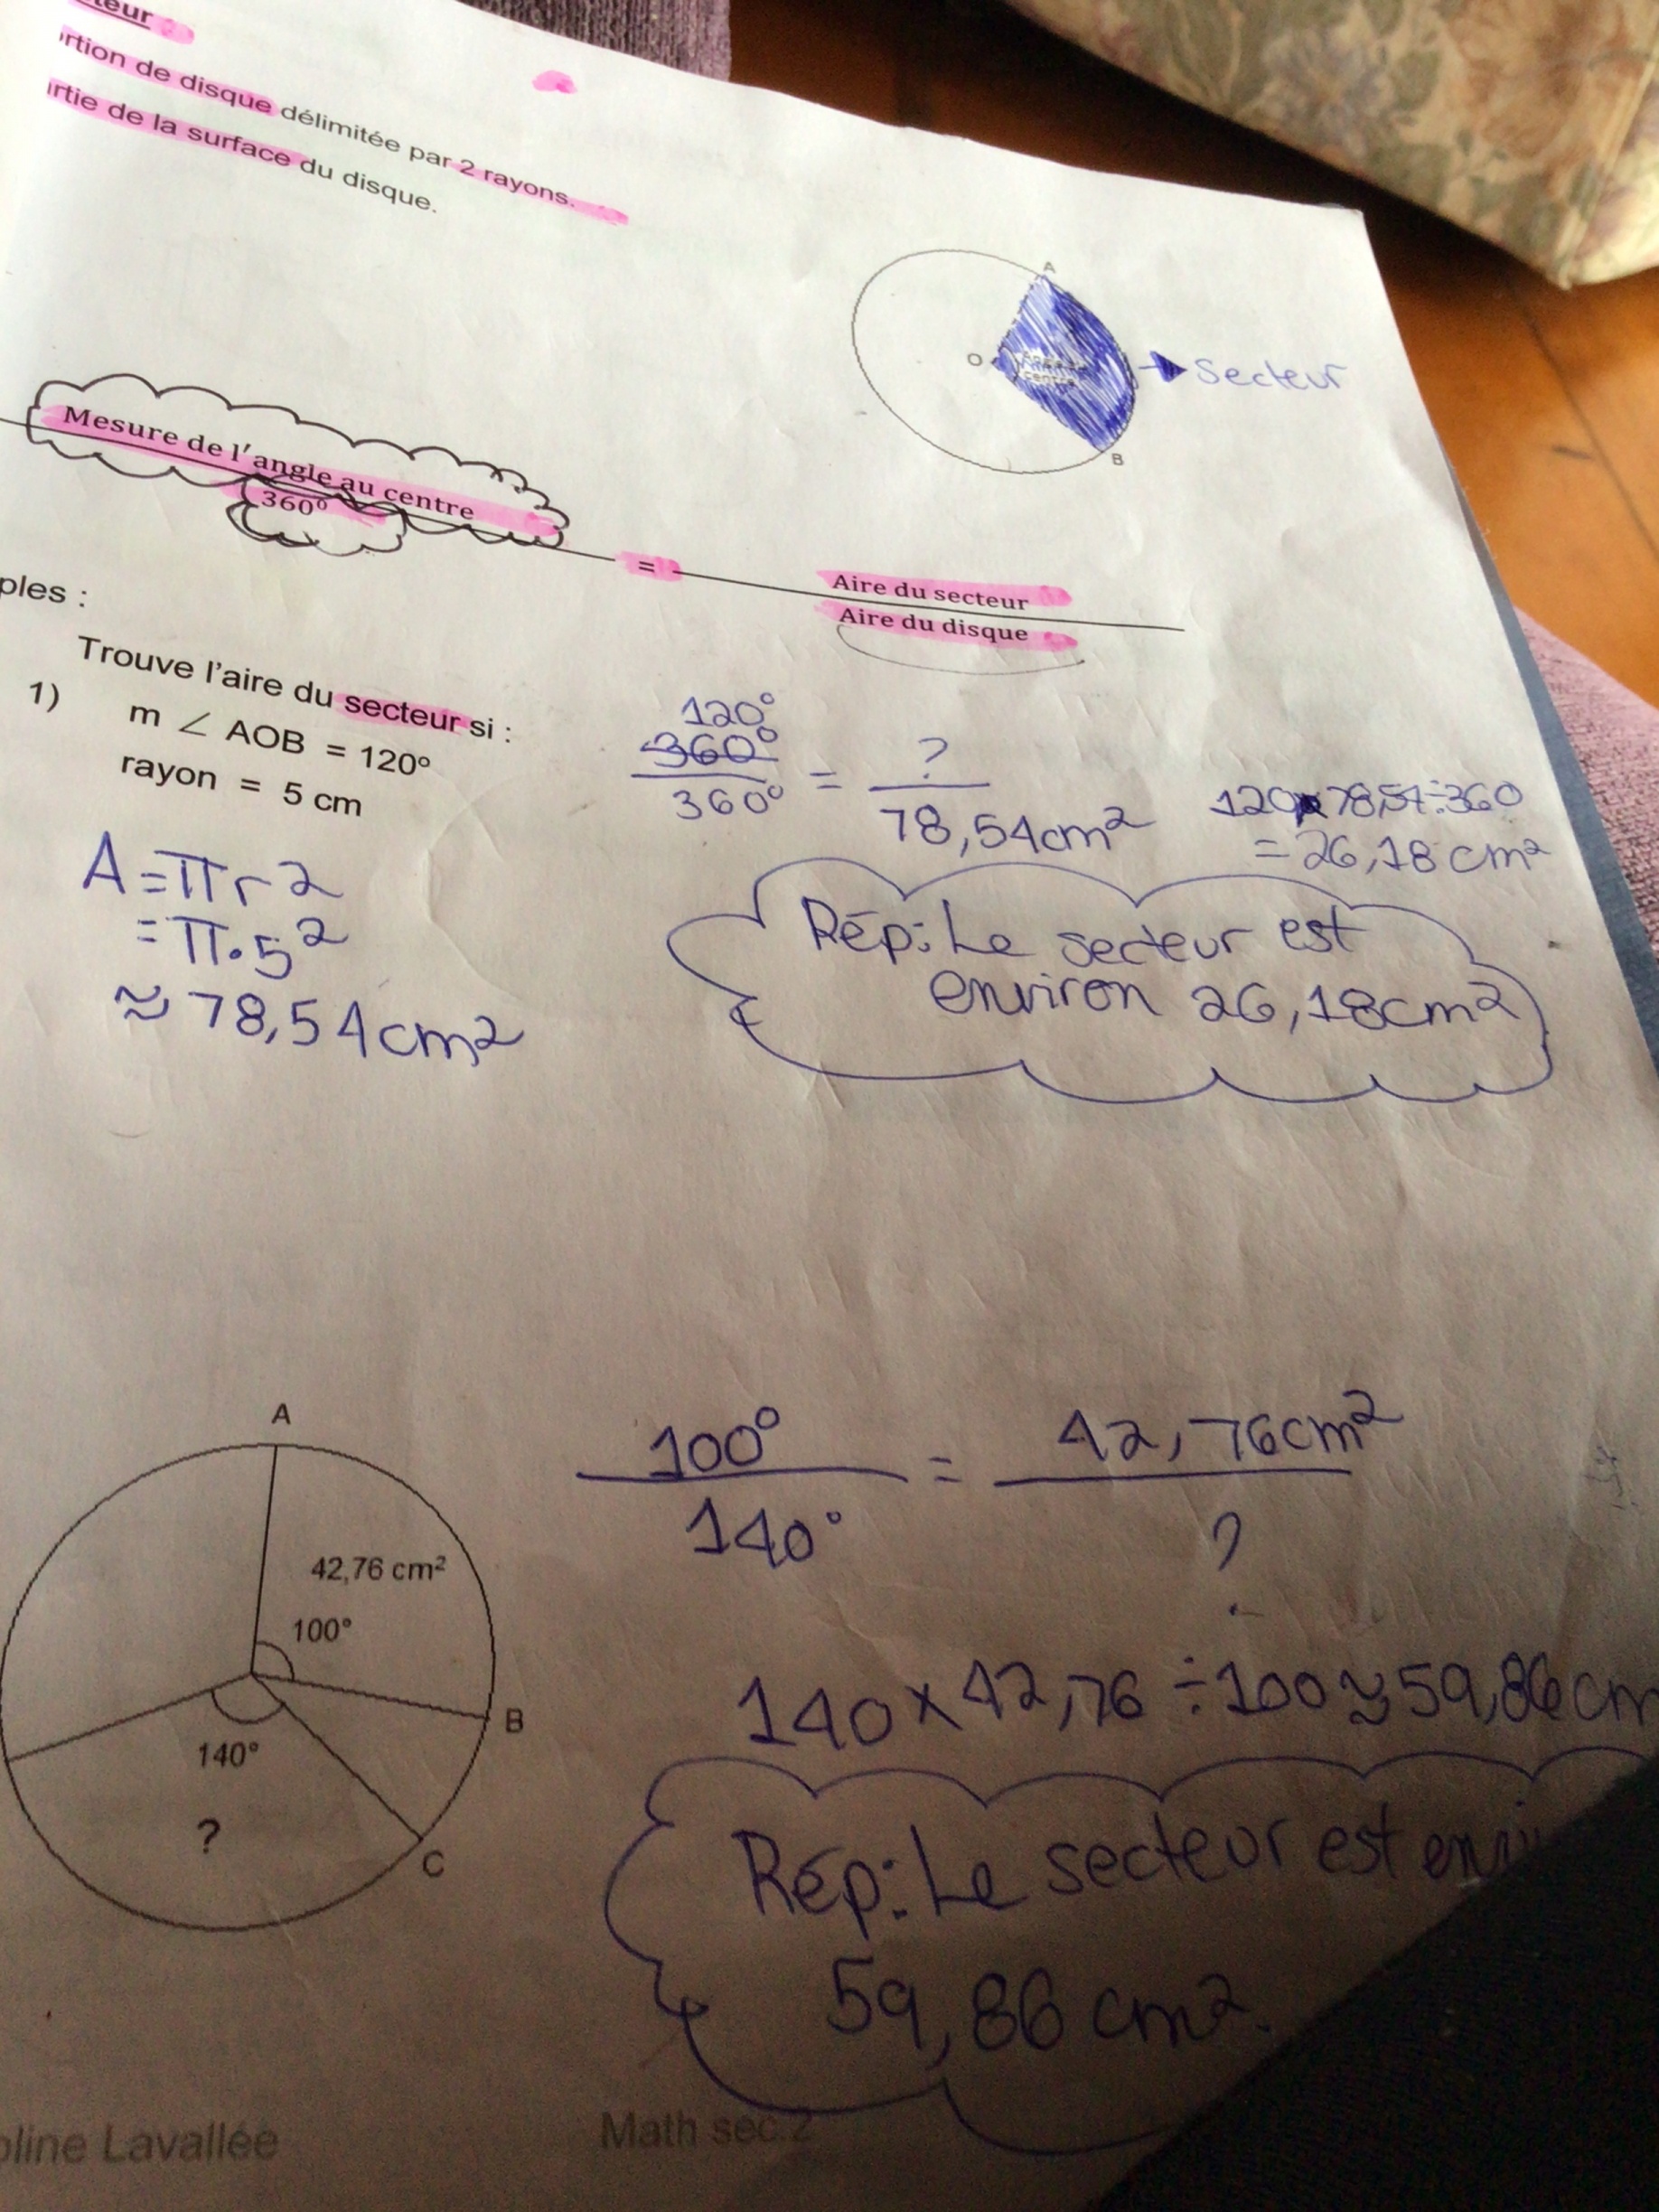 rtion de disque délimitée par 2 rayons.
rtie de la surface du disque.
A
O
B
Secteur
Mesure de l'angle au centre
360°
=
Aire du secteur
Aire du disque
ples :
Trouve l'aire du secteur si :
1)
m ∠ AOB = 120°
rayon = 5 cm
120°
360°
360°
= ?
78,54cm²
120x78,54÷360
= 26,18 cm²
A = πr2
= π•5²
≈ 78,54cm2
Rép: Le secteur est
environ 26,18cm2
A
42,76 cm²
100°
B
140°
?
C
100° = 42,76cm²
140° ?
140 x 42,76 ÷ 100 ≈ 59,86 cm
Rép: Le secteur est envi
59,86 cm².
oline Lavallée
Math sec.2